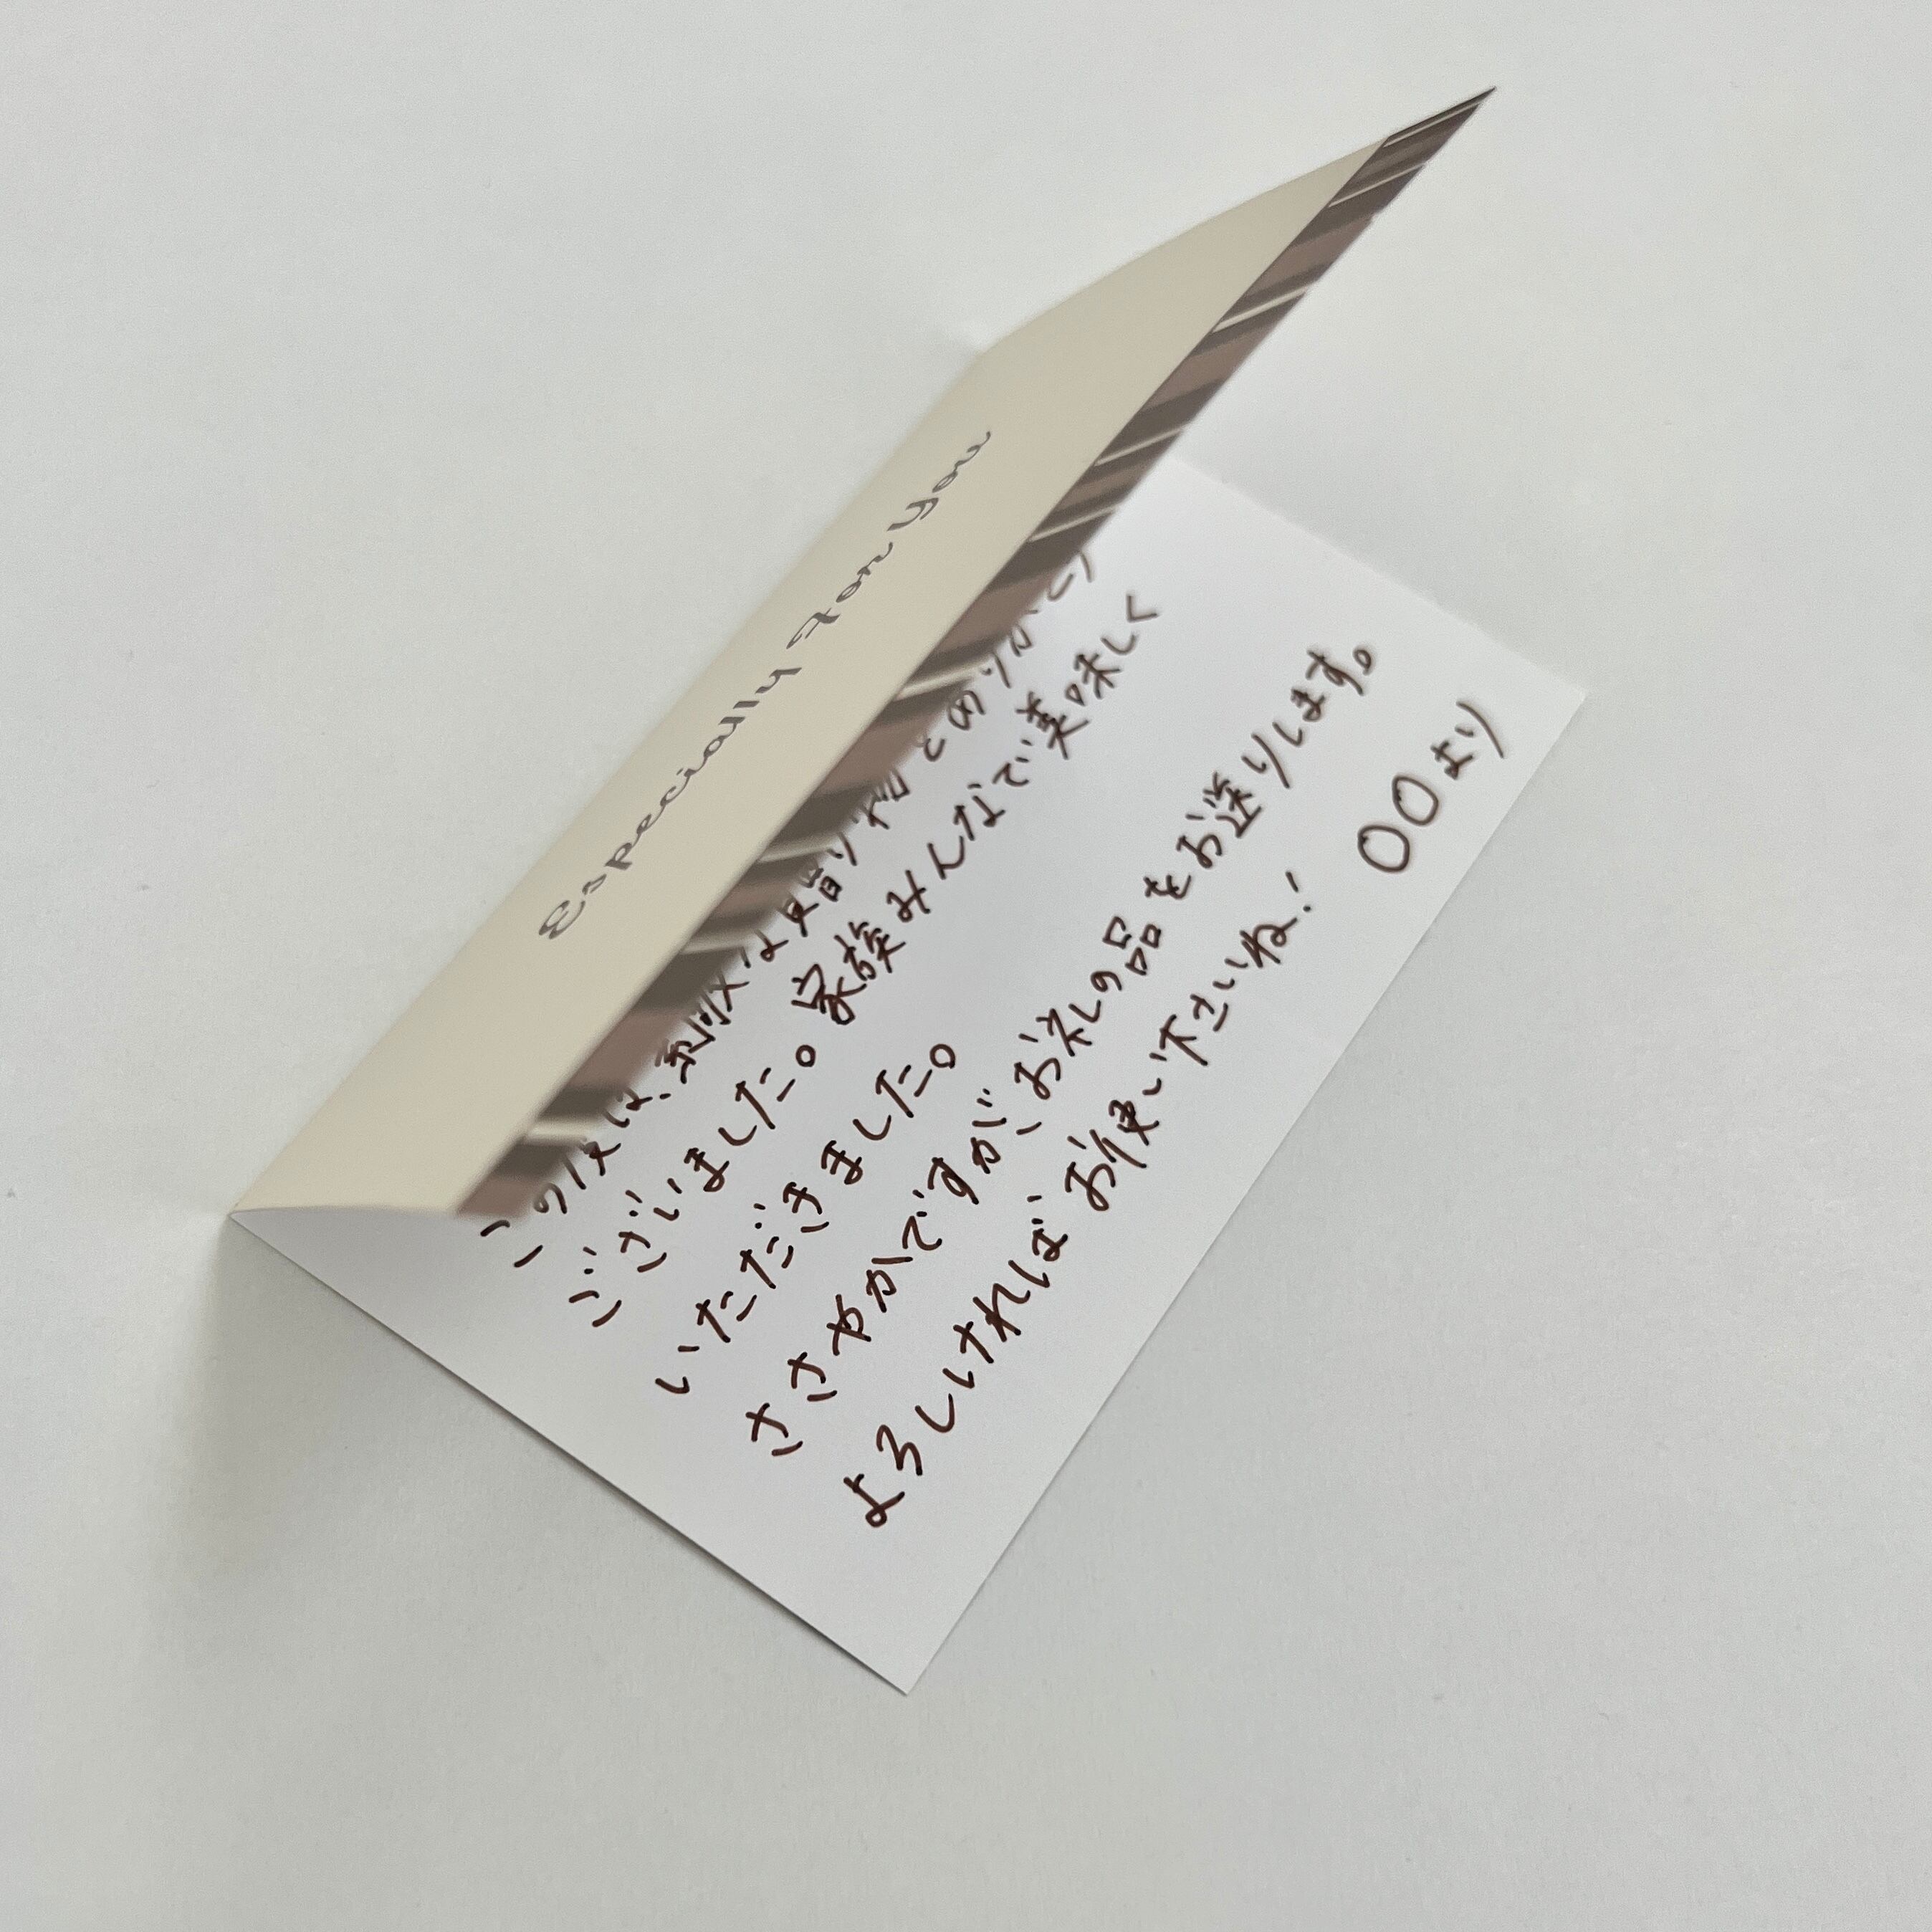 Especially For You
この度は、素敵な贈り物をありがとう
ございました。家族みんなで美味しく
いただきました。
ささやかですがお礼の品をお送りします。
よろしければお使い下さいね!
〇〇より